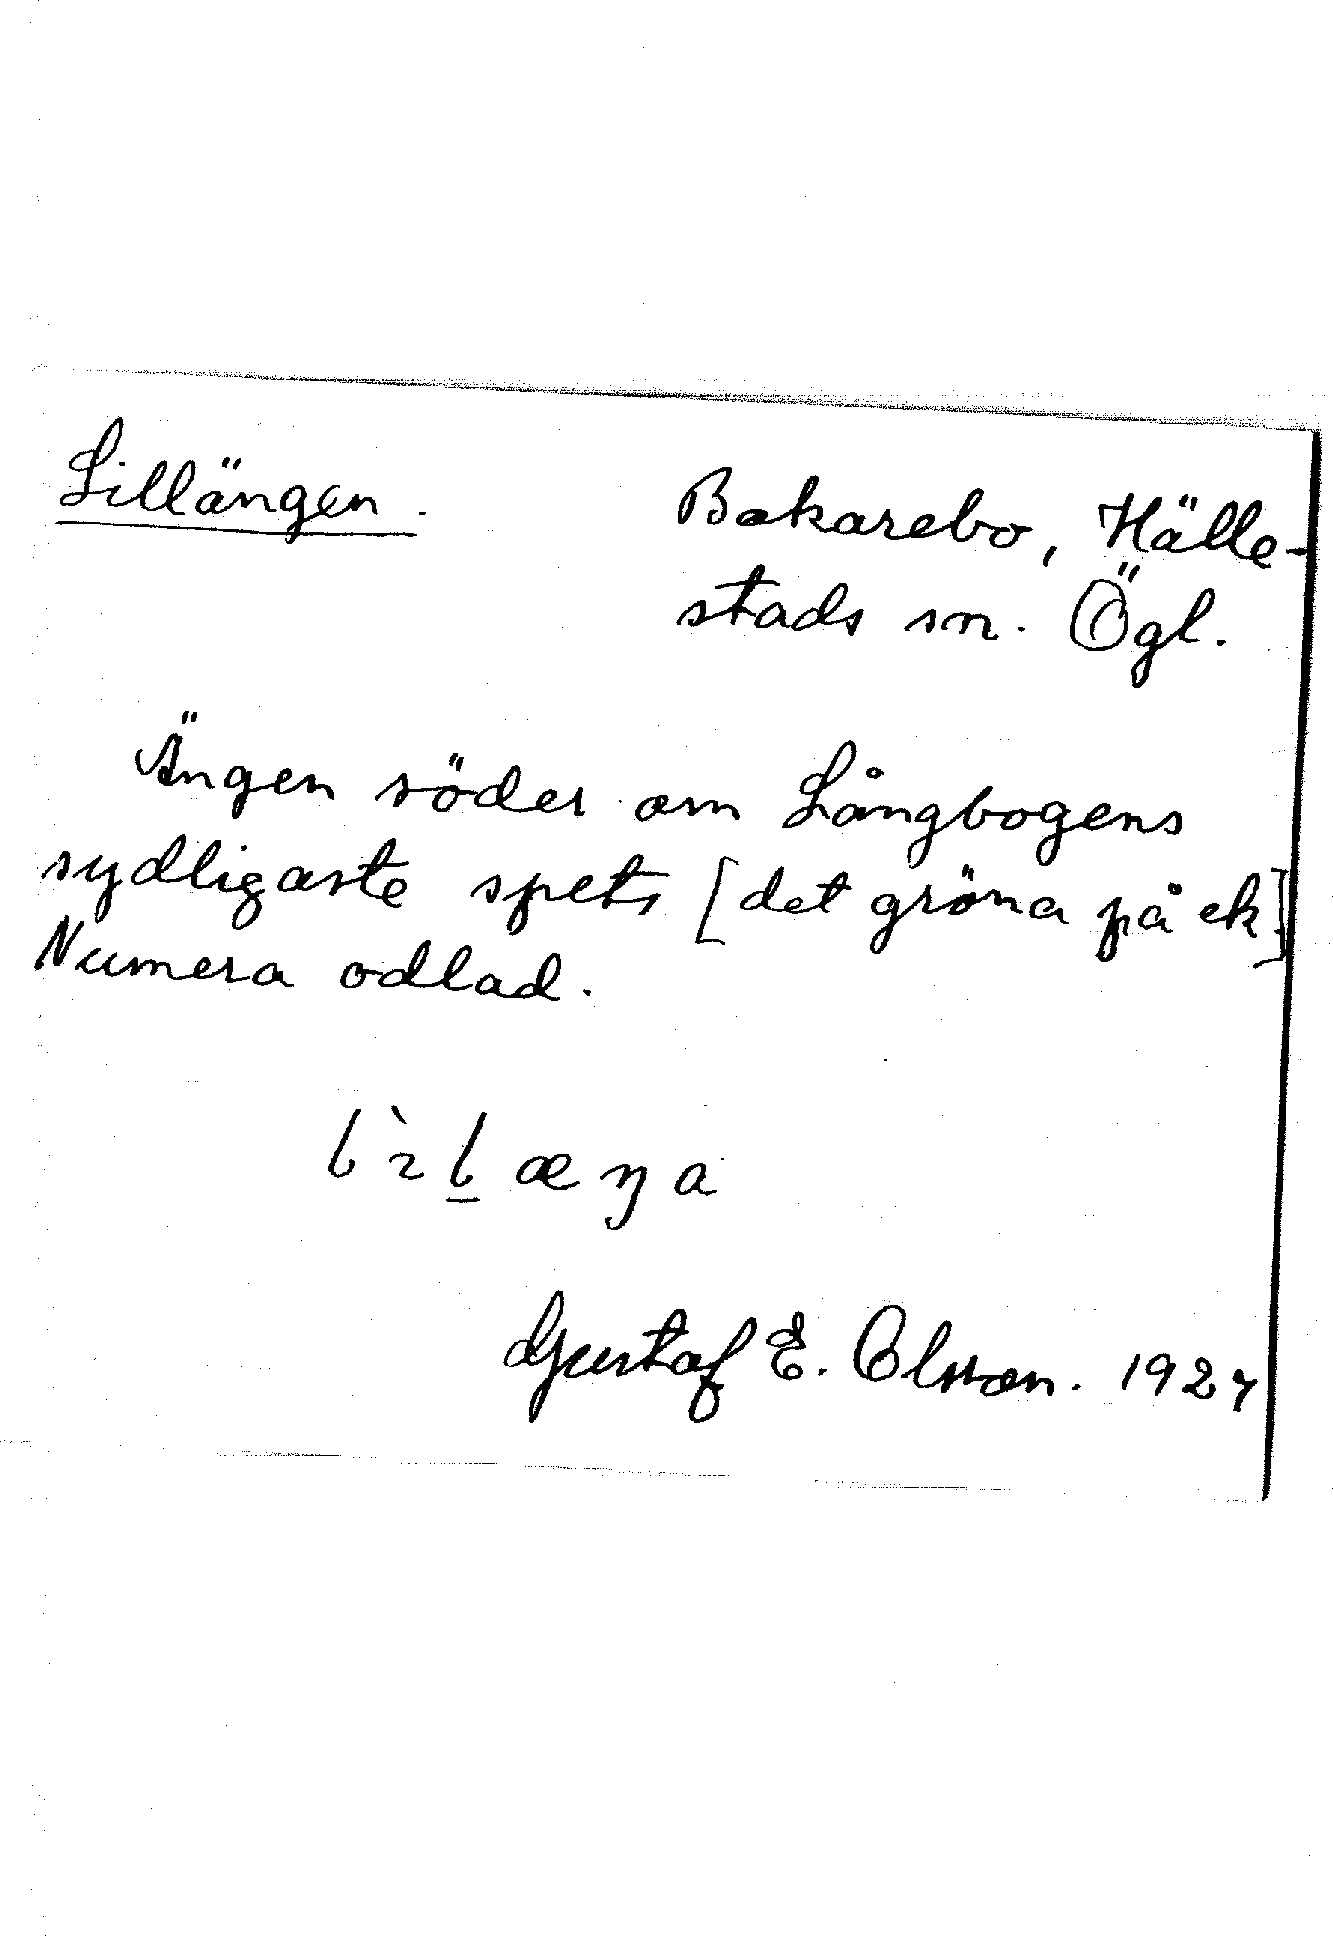 Lillängen.
Bakarebo, Hälle-
stads sn. Ögl.
Ängen söder om Långbogens
sydligaste spets [det gröna på ek]
Numera odlad.
Gustaf E. Olsson. 1927